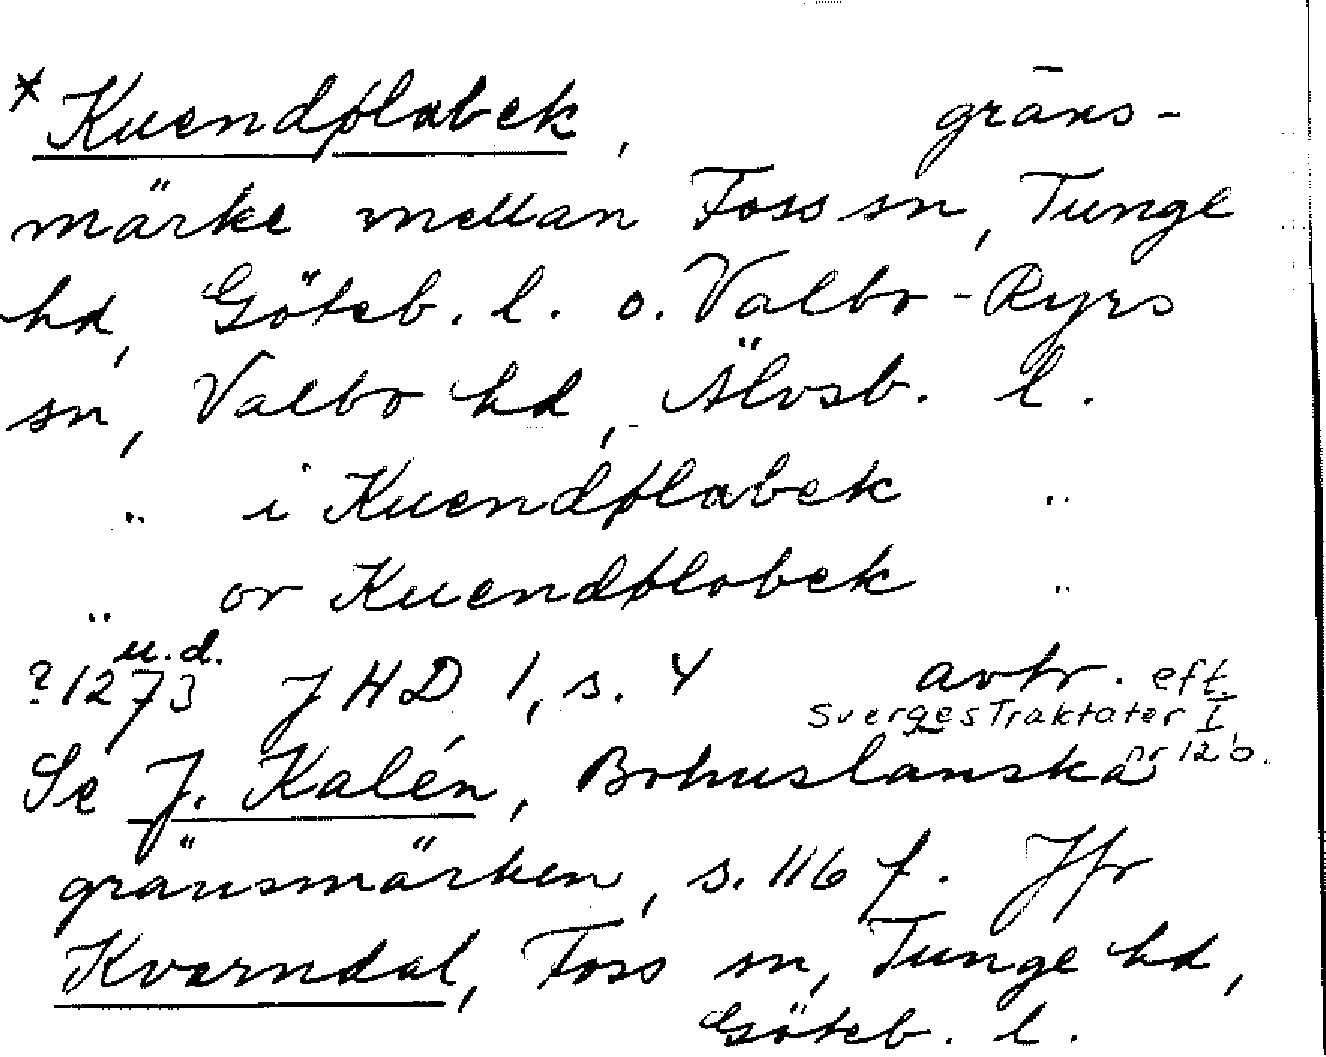 * Kuendølabek, gräns-
märke mellan Foss sn, Tunge
hd, Göteb. l. o. Valbo-Ryrs
sn, Valbo hd, Älvsb. l.
" i Kuendølabek "
" or Kuendølobek "
?1273 u.d. JHD 1, s. 4 avtr. eft.
Sverges Traktater I
nr 12 b.
Se J. Kalén, Bohuslänska
gränsmärken, s. 116 f. Jfr
Kvarndal, Foss sn, Tunge hd,
Göteb. l.